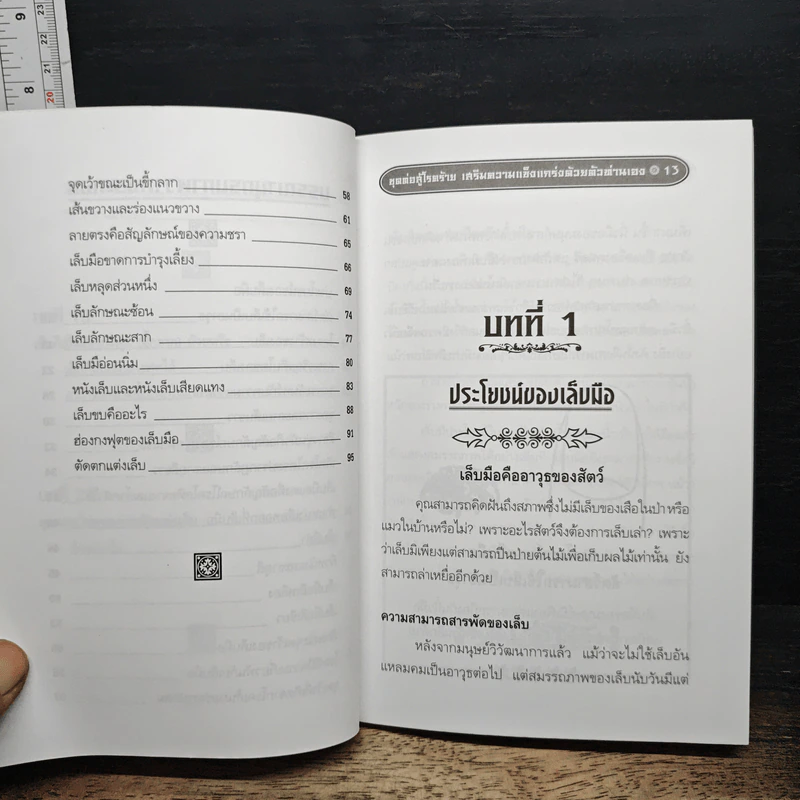 9
8
23
22
21
20
จุดเว้าขณะเป็นขี้กลาก 58
เส้นขวางและร่องแนวขวาง 61
ลายตรงคือสัญลักษณ์ของความชรา 65
เล็บมือขาดการบำรุงเลี้ยง 66
เล็บหลุดส่วนหนึ่ง 69
เล็บลักษณะช้อน 74
เล็บลักษณะสาก 77
เล็บมือ่อนนิ่ม 80
หนังเล็บและหนังเล็บเสียดแทง 83
เล็บขบคืออะไร 88
ฮ่องกงฟุตของเล็บมือ 91
ตัดตกแต่งเล็บ 95
ชุดต่อสู้โรคร้าย เสริมความแข็งแกร่งด้วยตัวท่านเอง 13
บทที่ 1
ประโยชน์ของเล็บมือ
เล็บมือคืออาวุธของสัตว์
คุณสามารถคิดฝันถึงสภาพซึ่งไม่มีเล็บของเสือในป่า หรือ
แมวในบ้านหรือไม่? เพราะอะไรสัตว์จึงต้องการเล็บเล่า? เพราะ
ว่าเล็บมิเพียงแต่สามารถปีนป่ายต้นไม้เพื่อเก็บผลไม้เท่านั้น ยัง
สามารถล่าเหยื่ออีกด้วย
ความสามารถสารพัดของเล็บ
หลังจากมนุษย์วิวัฒนาการแล้ว แม้ว่าจะไม่ใช้เล็บอัน
แหลมคมเป็นอาวุธต่อไป แต่สมรรถภาพของเล็บนับวันมีแต่